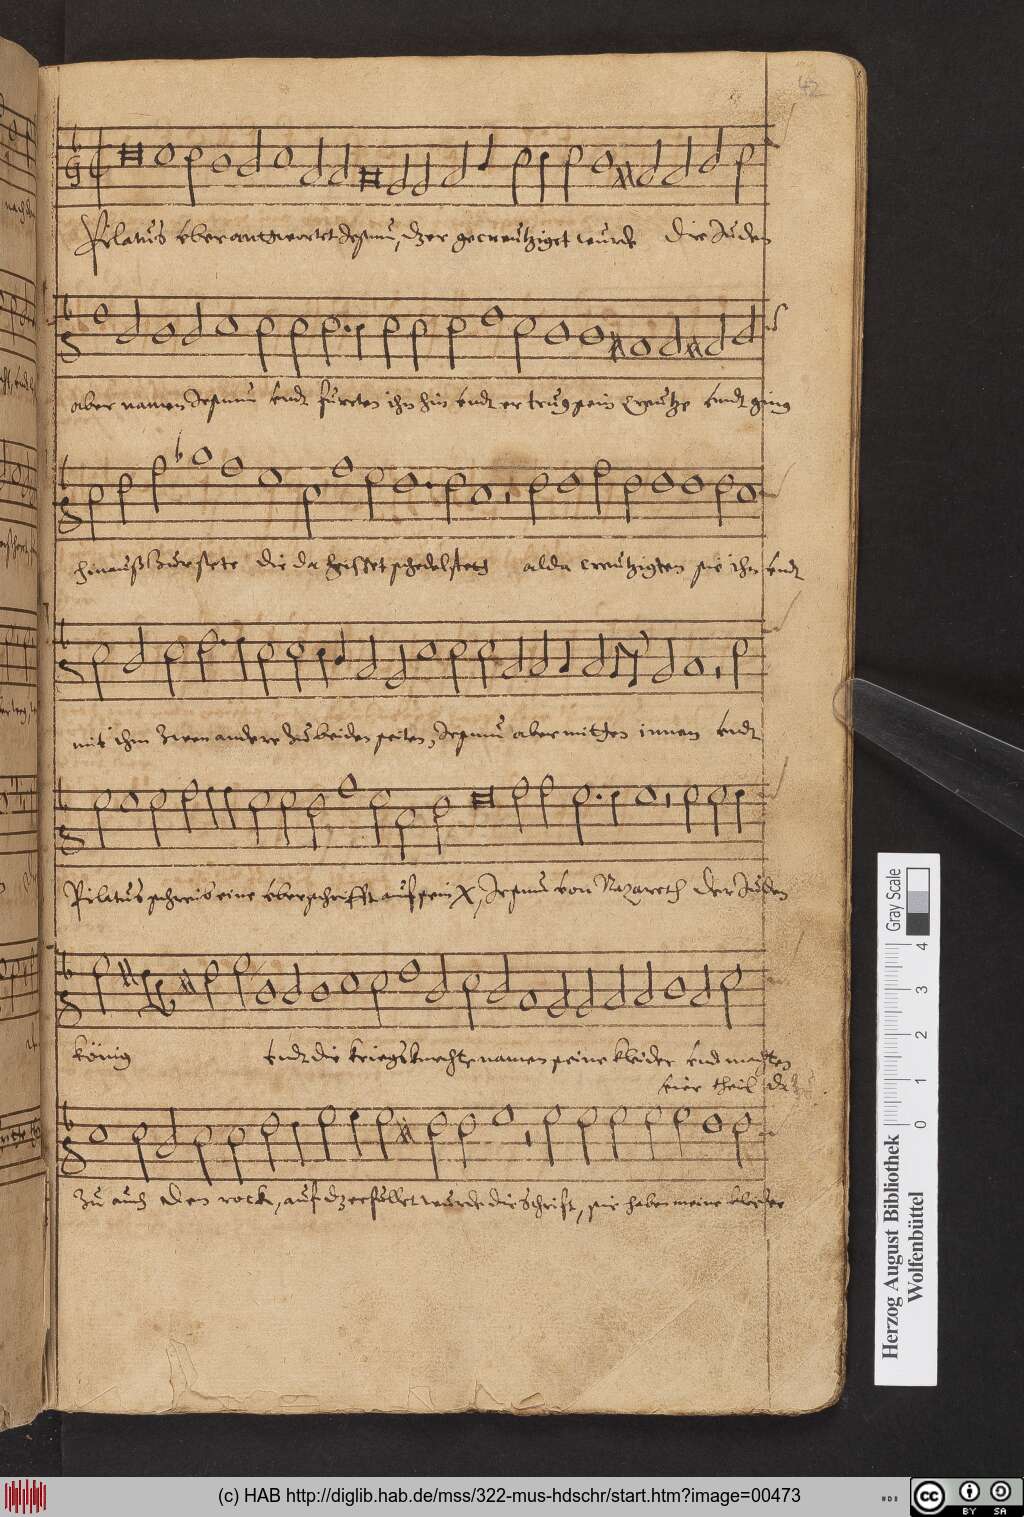 42
Pilatus vberantgwortet Jesum, dz er gecreutziget wurde die Juden
aber namen Jesum vndt fürten ihn hin vndt er trug sein Creutze vndt ging
hinauß zur stete die da heisset schedelstett alda creutzigten sie ihn vndt
mit ihm zwen andere zu beiden seiten, Jesum aber mitten innen vndt
Pilatus schreib eine vberschrifft auf sein X, Jesum von Nazareth der Juden
könig vndt die kriegsknechte namen seine kleider vnd machten
vier theil da
zu auch den rock, auf dz erfullet wurde die Schrift, sie haben meine kleider
Gray Scale
0 1 2 3 4
Herzog August Bibliothek
Wolfenbüttel
(c) HAB http://diglib.hab.de/mss/322-mus-hdschr/start.htm?image=00473
cc BY SA